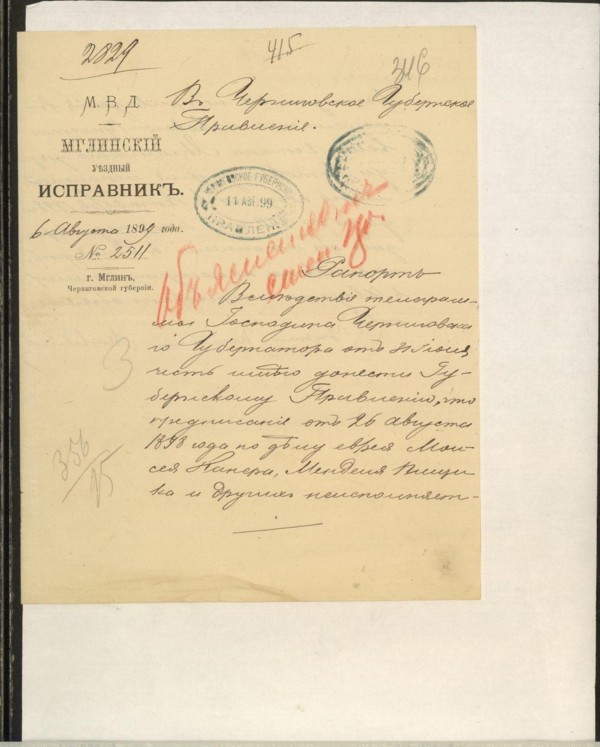 2829
415
316
М. В. Д.
МГЛИНСКІЙ
УѢЗДНЫЙ
ИСПРАВНИКЪ.
6 Августа 1899 года.
№ 2511
г. Мглинъ,
Черниговской губерніи.
Въ Черниговское Губернское
Правленіе.
11 АВГ. 99
ПРАВЛЕНІЕ
Рапортъ
Вслѣдствіе телеграм-
мы Господина Черниговска-
го Губернатора отъ Іюля
честь имѣю донести Гу-
бернскому Правленію, что
предписаніе отъ 26 Августа
1898 года по дѣлу еврея Мои-
сея Менделя
ка и другихъ неисполняет-
3
356